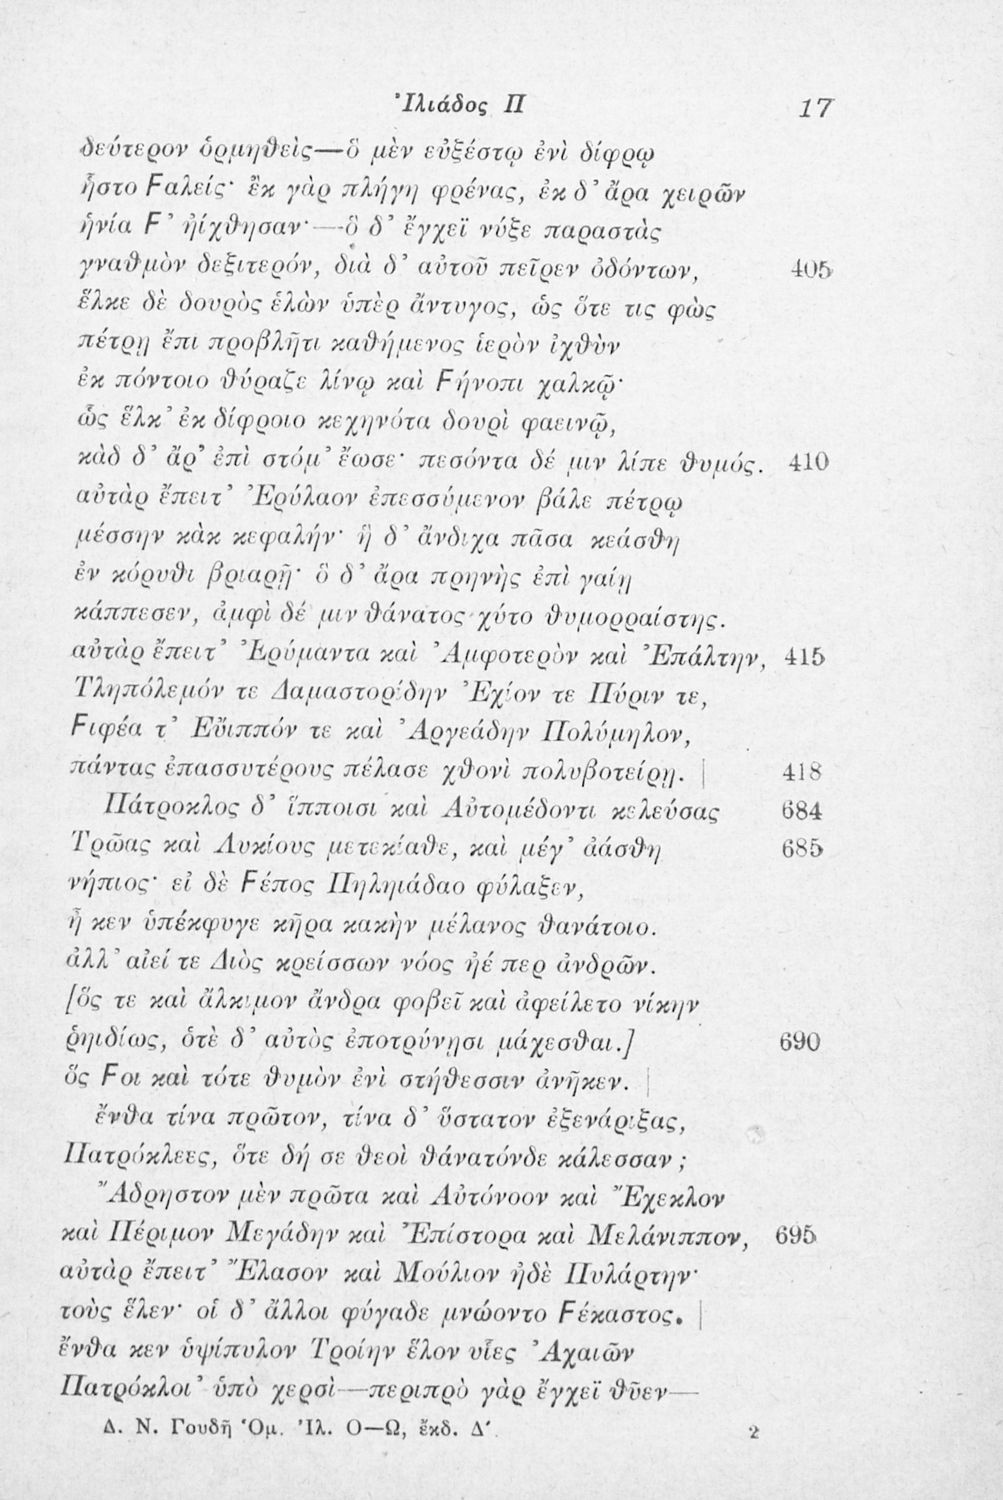 Ἰλιάδος Π 17
δεύτερον ὁρμηθεὶς—ὃ μὲν εὐξέστῳ ἐνὶ δίφρῳ
ἧστο Ϝαλείς· ἒκ γὰρ πλήγη φρένας, ἐκ δ’ ἄρα χειρῶν
ἡνία Ϝ’ ἠίχθησαν·—ὃ δ’ ἔγχεϊ νύξε παραστὰς
γναθμὸν δεξιτερόν, διὰ δ’ αὐτοῦ πεῖρεν ὀδόντων, 405
ἕλκε δὲ δουρὸς ἑλὼν ὑπὲρ ἄντυγος, ὡς ὅτε τις φὼς
πέτρῃ ἔπι προβλῆτι καθήμενος ἱερὸν ἰχθὺν
ἐκ πόντοιο θύραζε λίνῳ καὶ Ϝήνοπι χαλκῷ·
ὣς ἕλκ’ ἐκ δίφροιο κεχηνότα δουρὶ φαεινῷ,
κὰδ δ’ ἄρ’ ἐπὶ στόμ’ ἔωσε· πεσόντα δέ μιν λίπε θυμός. 410
αὐτὰρ ἔπειτ’ Ἐρύλαον ἐπεσσύμενον βάλε πέτρῳ
μέσσην κὰκ κεφαλήν· ἣ δ’ ἄνδιχα πᾶσα κεάσθη
ἐν κόρυθι βριαρῇ· ὃ δ’ ἄρα πρηνὴς ἐπὶ γαίῃ
κάππεσεν, ἀμφὶ δέ μιν θάνατος χύτο θυμορραίστης.
αὐτὰρ ἔπειτ’ Ἐρύμαντα καὶ Ἀμφοτερὸν καὶ Ἐπάλτην, 415
Τληπόλεμόν τε Δαμαστορίδην Ἐχίον τε Πύριν τε,
Ϝιφέα τ’ Εὔιππόν τε καὶ Ἀργεάδην Πολύμηλον,
πάντας ἐπασσυτέρους πέλασε χθονὶ πολυβοτείρῃ. | 418
Πάτροκλος δ’ ἵπποισι καὶ Αὐτομέδοντι κελεύσας 684
Τρῶας καὶ Λυκίους μετεκίαθε, καὶ μέγ’ ἀάσθη 685
νήπιος· εἰ δὲ Ϝέπος Πηληιάδαο φύλαξεν,
ἦ κεν ὑπέκφυγε κῆρα κακὴν μέλανος θανάτοιο.
ἀλλ’ αἰεί τε Διὸς κρείσσων νόος ἠέ περ ἀνδρῶν.
[ὅς τε καὶ ἄλκιμον ἄνδρα φοβεῖ καὶ ἀφείλετο νίκην
ῥηιδίως, ὁτὲ δ’ αὐτὸς ἐποτρύνῃσι μάχεσθαι.] 690
ὅς Ϝοι καὶ τότε θυμὸν ἐνὶ στήθεσσιν ἀνῆκεν. |
ἔνθα τίνα πρῶτον, τίνα δ’ ὕστατον ἐξενάριξας,
Πατρόκλεες, ὅτε δή σε θεοὶ θάνατόνδε κάλεσσαν;
Ἄδρηστον μὲν πρῶτα καὶ Αὐτόνοον καὶ Ἔχεκλον
καὶ Πέριμον Μεγάδην καὶ Ἐπίστορα καὶ Μελάνιππον, 695
αὐτὰρ ἔπειτ’ Ἔλασον καὶ Μούλιον ἠδὲ Πυλάρτην·
τοὺς ἕλεν· οἱ δ’ ἄλλοι φύγαδε μνώοντο Ϝέκαστος. |
ἔνθα κεν ὑψίπυλον Τροίην ἕλον υἷες Ἀχαιῶν
Πατρόκλοι’ ὑπὸ χερσὶ—περιπρὸ γὰρ ἔγχεϊ θῦεν—
Δ. Ν. Γουδῆ Ὁμ. Ἰλ. Ο—Ω, ἔκδ. Δ′. 2